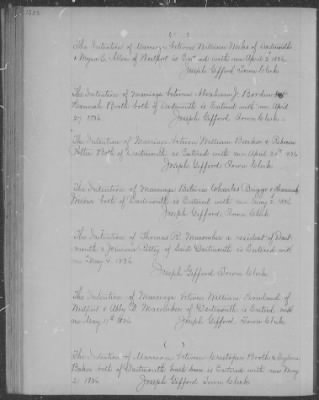 The Intention of Marriage between William Miles of Dartmouth
& Myra C. Allen of Westport is Ent ed with me April 2 1836
Joseph Gifford Town Clerk
The Intention of Marriage between Abraham J. Borden &
Hannah Booth both of Dartmouth is Entered with me April
27 1836 Joseph Gifford Town Clerk
The Intention of Marriage between William Barker & Rebecca
Potter Both of Dartmouth is Entered with me April 30th 1836
Joseph Gifford Town Clerk
The Intention of Marriage Between Charles Briggs & Hannah
both of Dartmouth is Entered with me May 2 1836
Joseph Gifford Town Clerk
The Intention of Thomas R. Macomber a resident of Dart
mouth & of said Dartmouth is Entered with
me May 4 1836
Joseph Gifford Town Clerk
The Intention of Marriage between William Rowland of
Westport & Abby D. Macomber of Dartmouth is Entered with
me May 1836 Joseph Gifford Town Clerk
The Intention of Marriage between Booth &
Baker both of Dartmouth have been is Entered with me May
21 1836 Joseph Gifford Town Clerk